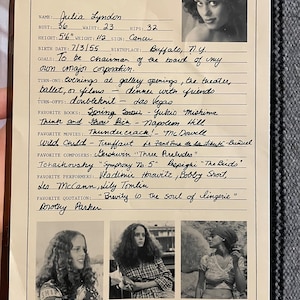 NAME: Julia Lyndon
BUST: 36 WAIST: 23 HIPS: 32
HEIGHT: 5'6" WEIGHT: 112 SIGN: Cancer
BIRTH DATE: 7/3/55 BIRTHPLACE: Buffalo, N.Y.
GOALS: To be chairman of the board of my
own major corporation.
TURN-ONS: Evenings at gallery openings, the theater,
ballet, or films – dinner with friends
TURN-OFFS: Doubleknit – Las Vegas
FAVORITE BOOKS: Spring Snow - Yukio Mishima
Think and Grow Rich - Napoleon Hill
FAVORITE MOVIES: Thundercrack! - McDowell
Wild Child - Truffaut
FAVORITE COMPOSERS: Gershwin "Three Preludes"
Tchaikovsky "Symphony No 5" Respighi "The Birds"
FAVORITE PERFORMERS: Vladimir Horowitz, Bobby Short,
Les McCann, Lily Tomlin
FAVORITE QUOTATION: "Brevity is the soul of lingerie"
Dorothy Parker